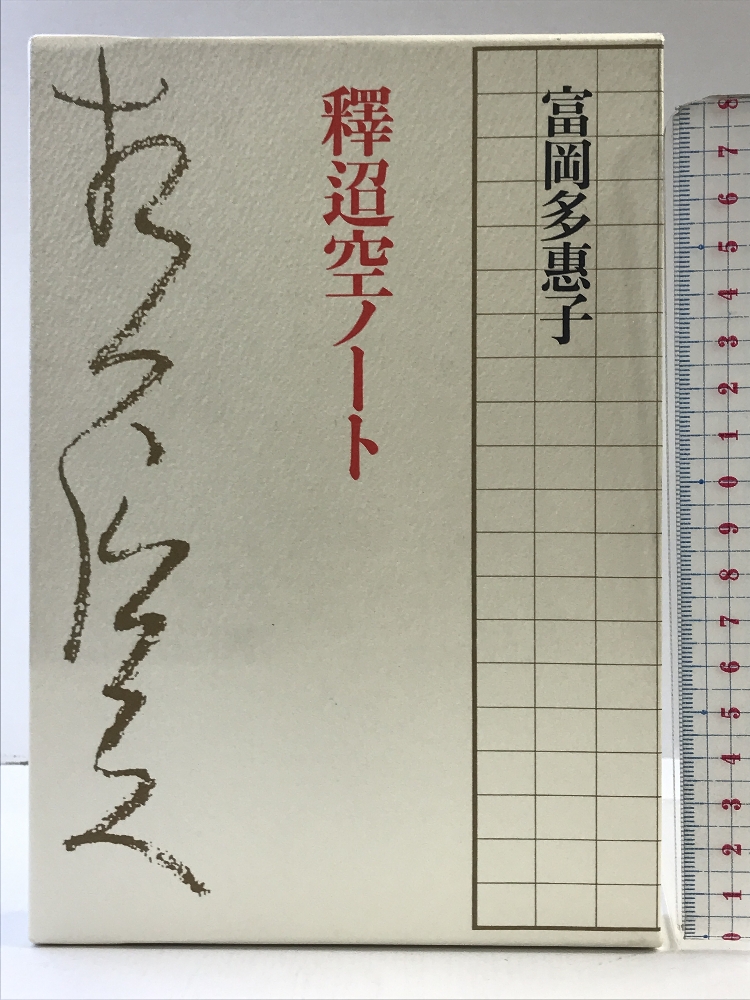 富岡多惠子
釋迢空ノート
8
7
6
5
4
3
2
1
0
9
8
7
6
5
4
3
2
1
0